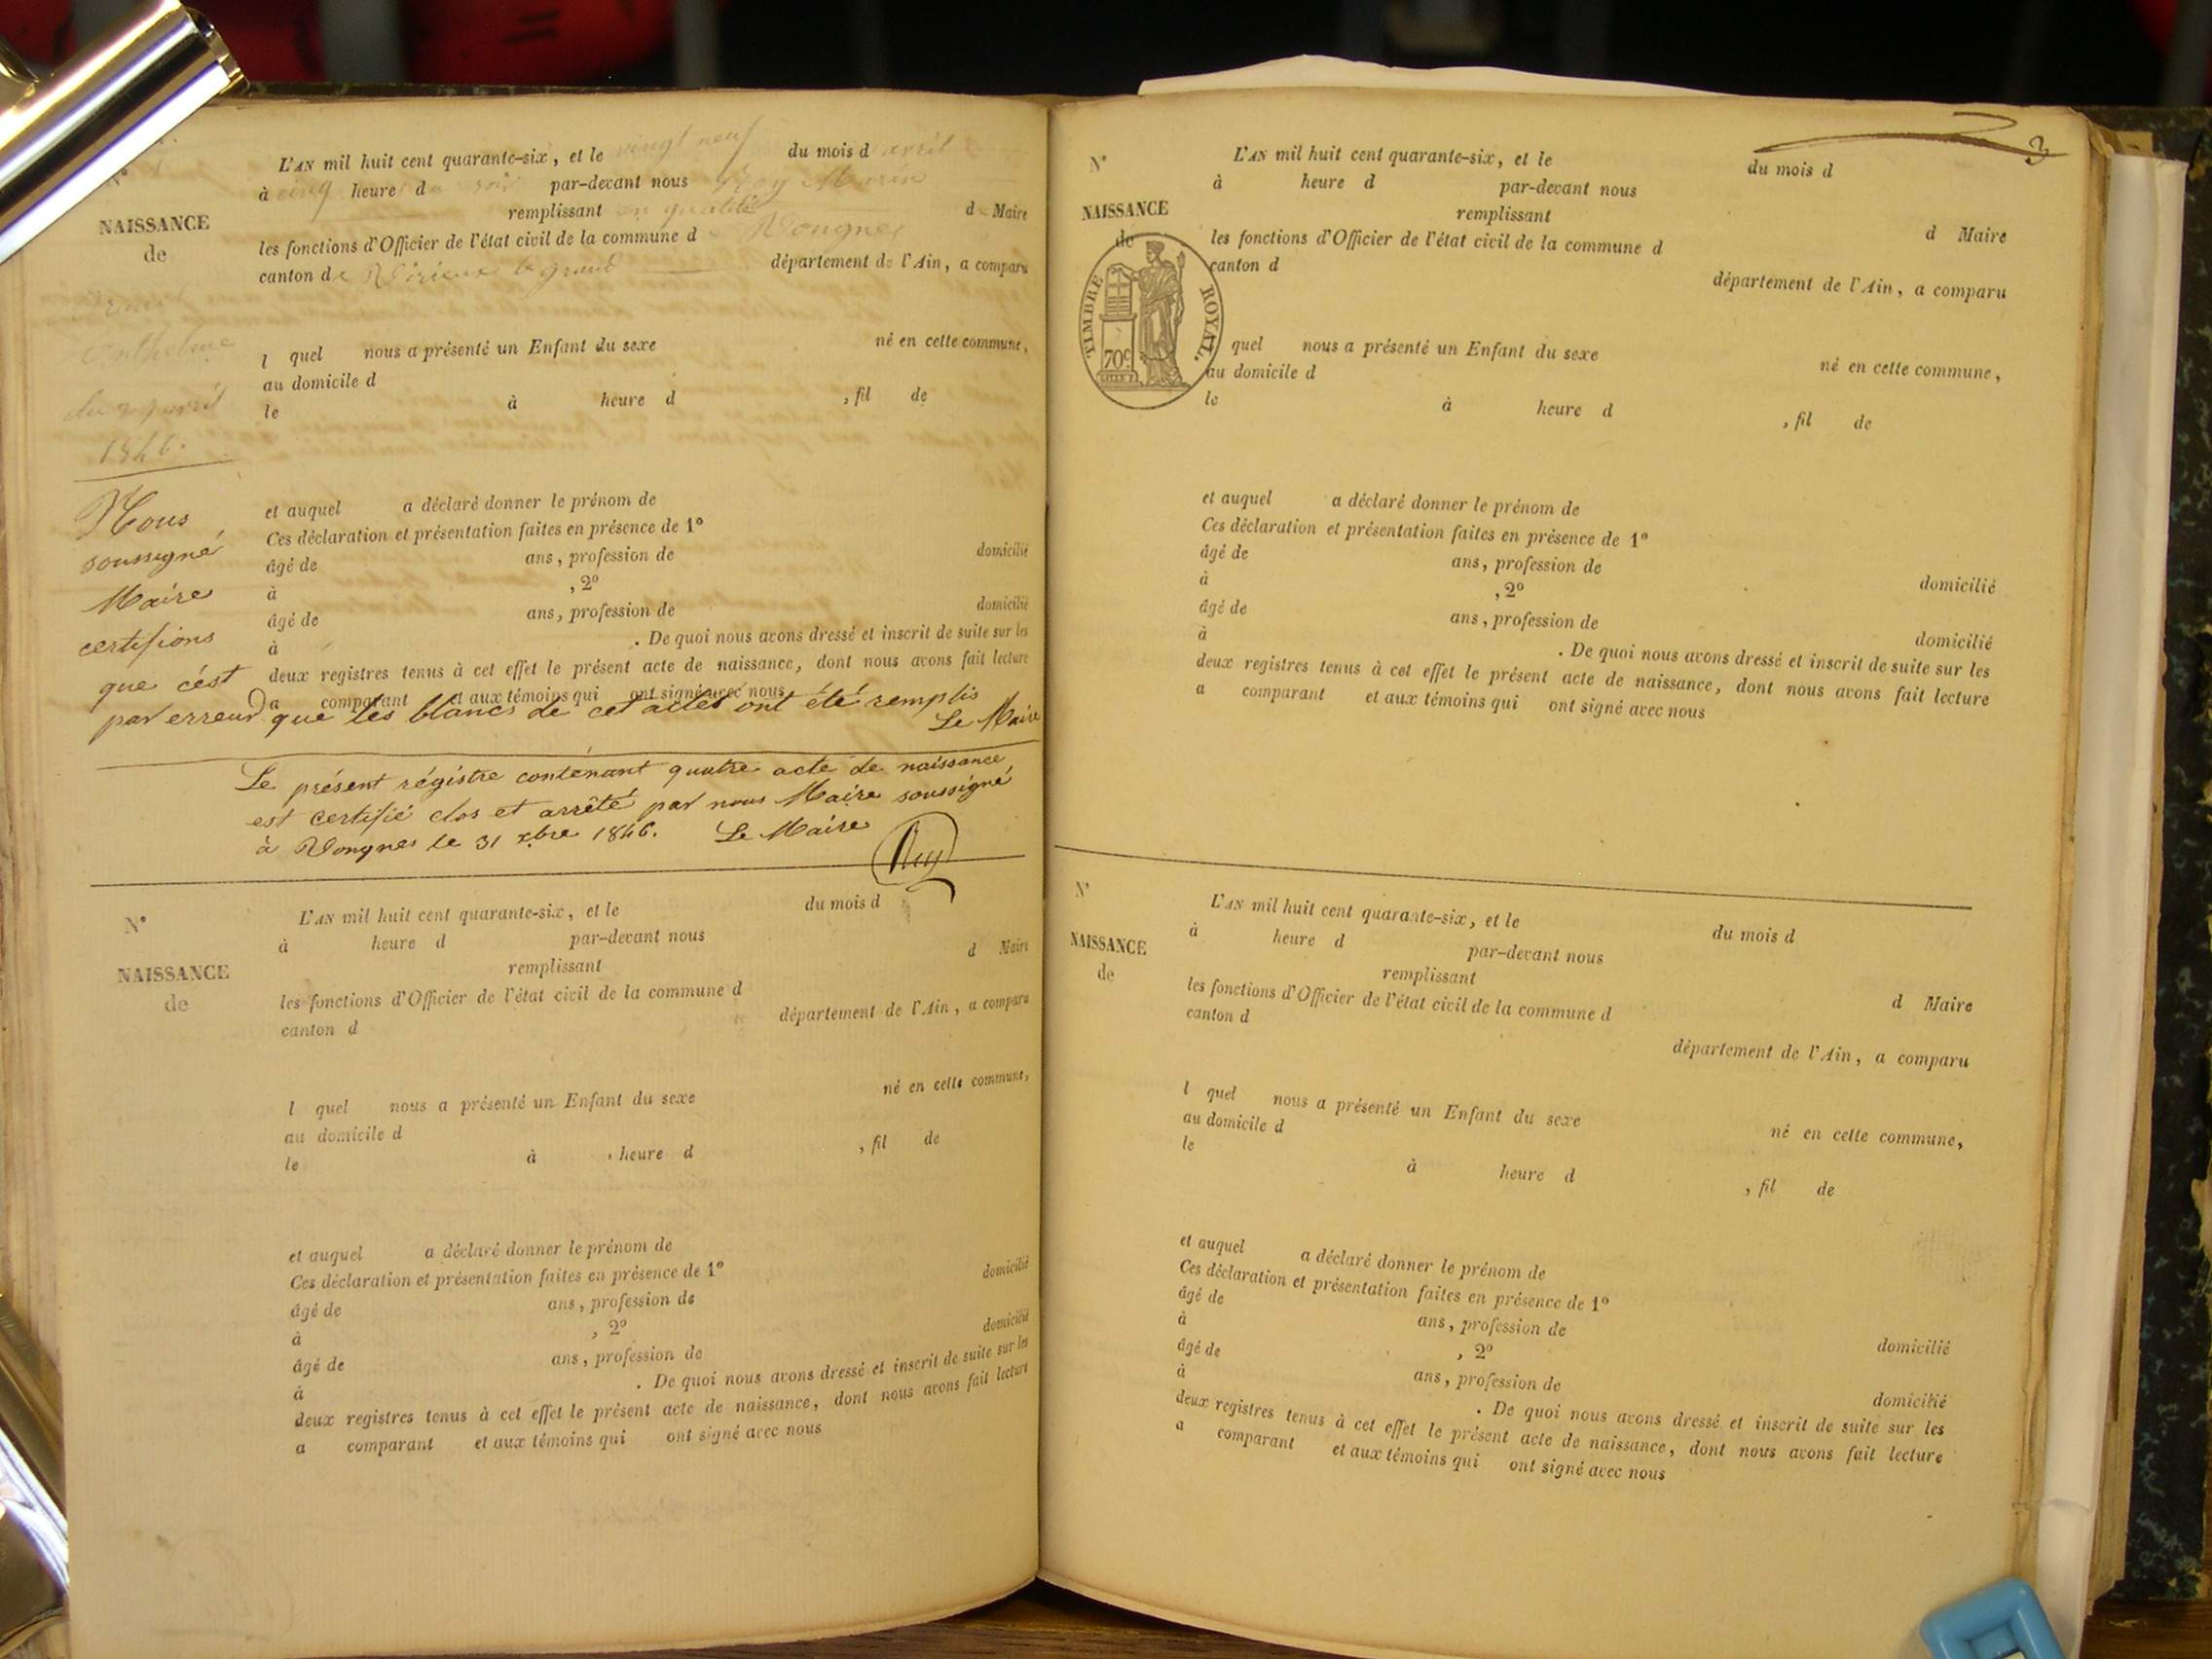 L'AN mil huit cent quarante-six, et le vingt neuf du mois d avril
à cinq heure d soir par-devant nous Rey
remplissant en qualité d Maire
les fonctions d'Officier de l'état civil de la commune d Vongnes
canton de Virieux le grand département de l'Ain, a comparu
N°
NAISSANCE
de
Anthelme
du 29 avril
1846.
l quel nous a présenté un Enfant du sexe né en cette commune,
au domicile d
le à heure d , fil de
et auquel a déclaré donner le prénom de
Ces déclaration et présentation faites en présence de 1°
âgé de ans, profession de domicilié
à , 2°
âgé de ans, profession de domicilié
à . De quoi nous avons dressé et inscrit de suite sur les
deux registres tenus à cet effet le présent acte de naissance, dont nous avons fait lecture
a comparant et aux témoins qui ont signé avec nous
Nous
soussigné
Maire
certifions
que c'ést
par erreur que les blancs de cet actes ont été remplis
Le Maire
Le présent régistre contenant quatre acte de naissance,
est certifié clos et arrêté par nous Maire soussigné
à Vongnes le 31 xbre 1846. Le Maire
Rey
N°
NAISSANCE
de
L'AN mil huit cent quarante-six, et le du mois d
à heure d par-devant nous
remplissant d Maire
les fonctions d'Officier de l'état civil de la commune d
canton d département de l'Ain, a comparu
l quel nous a présenté un Enfant du sexe né en cette commune,
au domicile d
le à heure d , fil de
et auquel a déclaré donner le prénom de
Ces déclaration et présentation faites en présence de 1°
âgé de ans, profession de domicilié
à , 2°
âgé de ans, profession de domicilié
à . De quoi nous avons dressé et inscrit de suite sur les
deux registres tenus à cet effet le présent acte de naissance, dont nous avons fait lecture
a comparant et aux témoins qui ont signé avec nous
3
N°
NAISSANCE
de
TIMBRE ROYAL.
70c
L'AN mil huit cent quarante-six, et le du mois d
à heure d par-devant nous
remplissant d Maire
les fonctions d'Officier de l'état civil de la commune d
canton d département de l'Ain, a comparu
quel nous a présenté un Enfant du sexe né en cette commune,
au domicile d
le à heure d , fil de
et auquel a déclaré donner le prénom de
Ces déclaration et présentation faites en présence de 1°
âgé de ans, profession de domicilié
à , 2°
âgé de ans, profession de domicilié
à . De quoi nous avons dressé et inscrit de suite sur les
deux registres tenus à cet effet le présent acte de naissance, dont nous avons fait lecture
a comparant et aux témoins qui ont signé avec nous
N°
NAISSANCE
de
L'AN mil huit cent quarante-six, et le du mois d
à heure d par-devant nous
remplissant d Maire
les fonctions d'Officier de l'état civil de la commune d
canton d département de l'Ain, a comparu
l quel nous a présenté un Enfant du sexe né en cette commune,
au domicile d
le à heure d , fil de
et auquel a déclaré donner le prénom de
Ces déclaration et présentation faites en présence de 1°
âgé de ans, profession de domicilié
à , 2°
âgé de ans, profession de domicilié
à . De quoi nous avons dressé et inscrit de suite sur les
deux registres tenus à cet effet le présent acte de naissance, dont nous avons fait lecture
a comparant et aux témoins qui ont signé avec nous